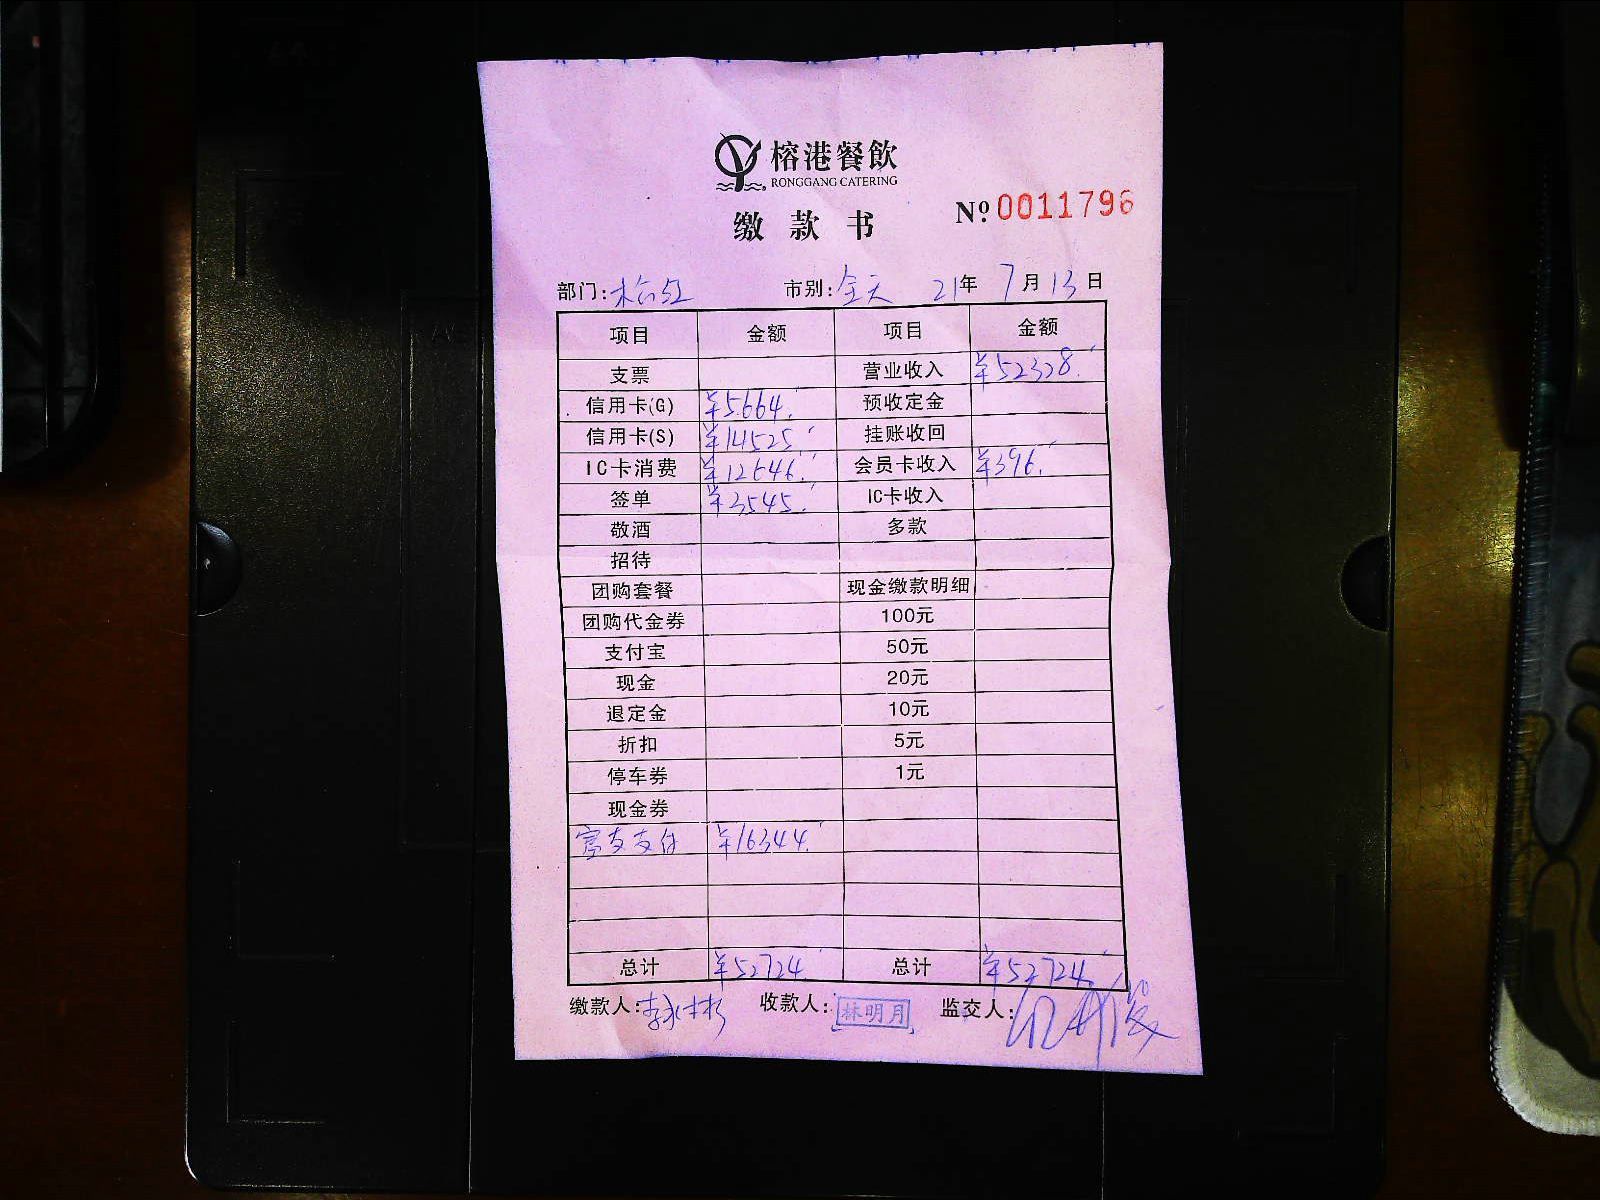 榕港餐飲
RONGGANG CATERING
缴款书
№ 0011796
部门: 市别:全天 21年 7月 13日
项目 金额 项目 金额
支票 营业收入 ¥52328.
信用卡(G) ¥5664. 预收定金
信用卡(S) ¥14525 挂账收回
IC卡消费 ¥12646. 会员卡收入 ¥396.
签单 ¥3545. IC卡收入
敬酒 多款
招待
团购套餐 现金缴款明细
团购代金券 100元
支付宝 50元
现金 20元
退定金 10元
折扣 5元
停车券 1元
现金券
富友支付 ¥16344.
总计 ¥52724 总计 ¥52724.
缴款人: 收款人:林明月 监交人: